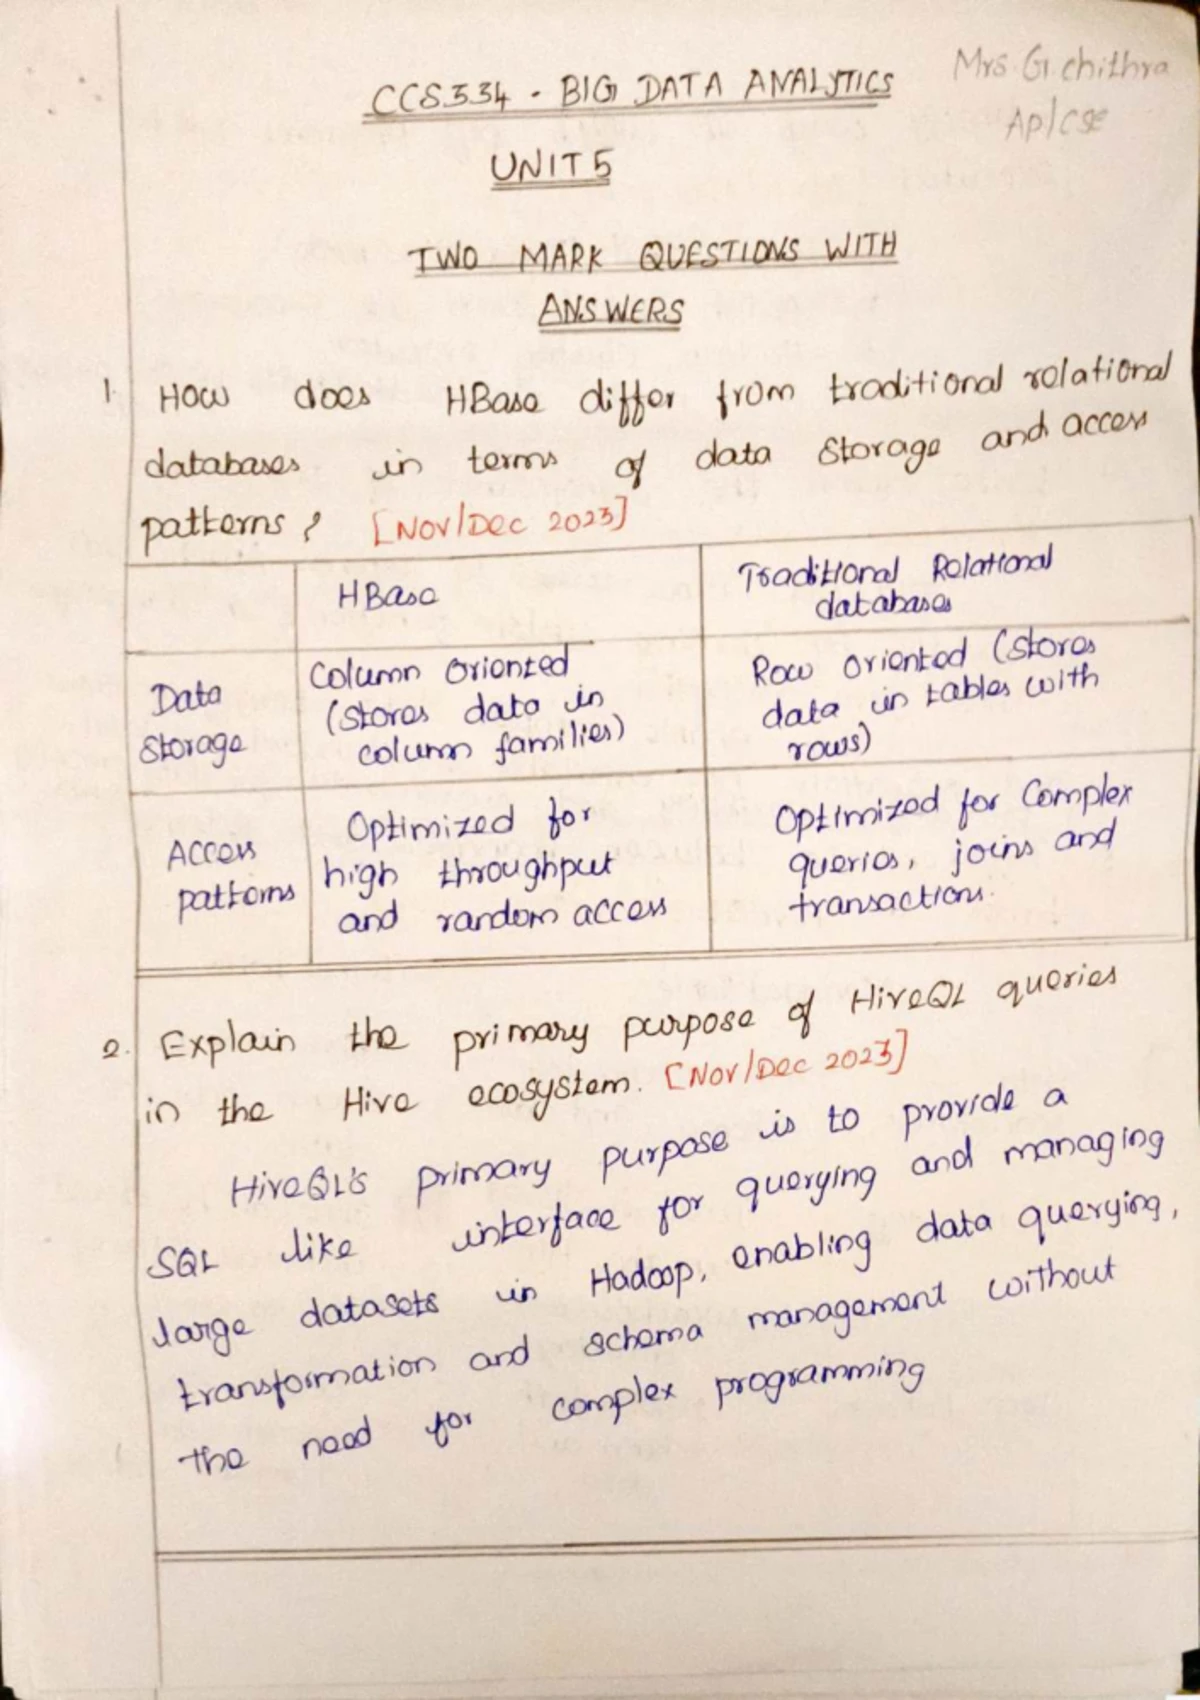 Mrs. G. chithra
AP/CSE
CCS334 - BIG DATA ANALYTICS
UNIT 5
TWO MARK QUESTIONS WITH
ANSWERS
1. How does HBase differ from traditional relational
databases in terms of data Storage and access
patterns? [Nov/Dec 2023]
HBase
Traditional Relational
databases
Data
Storage
Column oriented
(stores data in
column families)
Row oriented (stores
data in tables with
rows)
Access
patterns
Optimized for
high throughput
and random access
Optimized for Complex
queries, joins and
transactions.
2. Explain the primary purpose of HiveQL queries
in the Hive ecosystem. [Nov/Dec 2023]
HiveQL's primary purpose is to provide a
SQL like interface for querying and managing
large datasets in Hadoop, enabling data querying,
transformation and schema management without
the need for complex programming